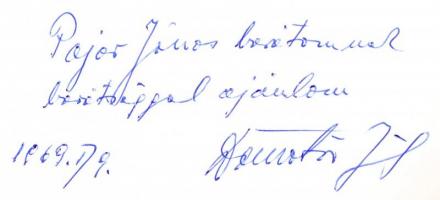 Pajor János barátomnak
barátsággal ajánlom
1969. I/9. Dömötör